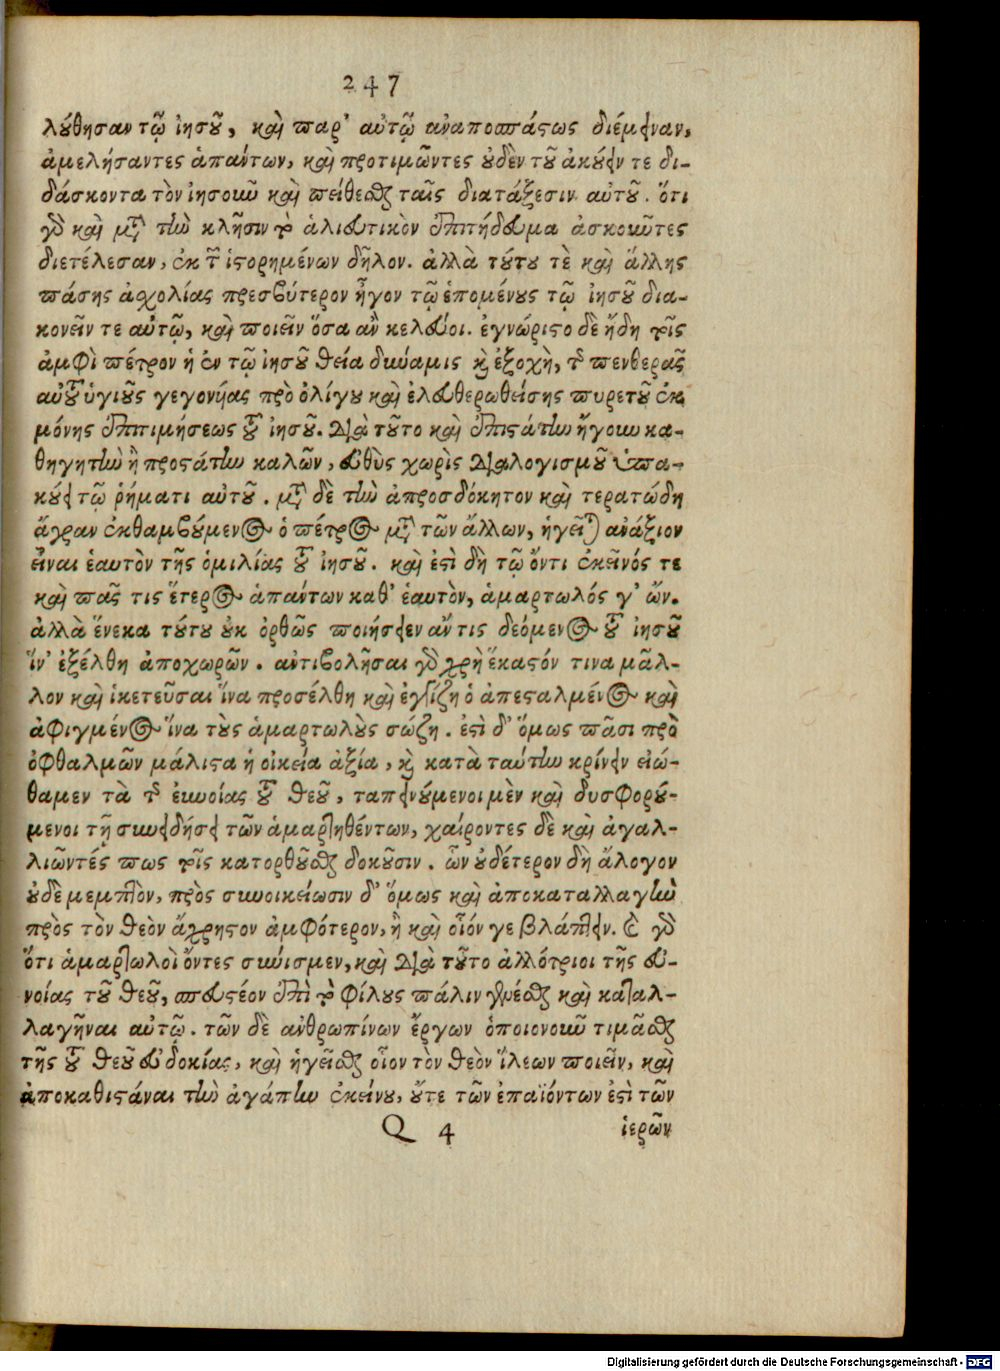 247
λούθησαν τῷ ἰησοῦ, καὶ παρ' αὐτῷ ἀναποσπάστως διέμειναν,
ἀμελήσαντες ἁπάντων, καὶ προτιμῶντες οὐδὲν τοῦ ἀκούειν τε δι-
δάσκοντα τὸν ἰησοῦν καὶ πείθεσθαι ταῖς διατάξεσιν αὐτοῦ. ὅτι
γὰρ καὶ μετὰ τὴν κλῆσιν τὸ ἁλιευτικὸν ἐπιτήδευμα ἀσκοῦντες
διετέλεσαν, ἐκ τῶν ἱστορημένων δῆλον. ἀλλὰ τούτου τὲ καὶ ἄλλης
πάσης ἀσχολίας πρεσβύτερον ἦγον τῷ ἑπομένους τῷ ἰησοῦ δια-
κονεῖν τε αὐτῷ, καὶ ποιεῖν ὅσα ἂν κελεύοι. ἐγνώριστο δὲ ἤδη τοῖς
ἀμφὶ πέτρον ἡ ἐν τῷ ἰησοῦ θεία δύναμις καὶ ἐξοχὴ, τῆς πενθερᾶς
αὐτοῦ ὑγιοῦς γεγονυίας πρὸ ὀλίγου καὶ ἐλευθερωθείσης πυρετοῦ ἐκ
μόνης ἐπιτιμήσεως τοῦ ἰησοῦ. διὰ τοῦτο καὶ ἐπιστάτην ἤγουν κα-
θηγητὴν ἢ προστάτην καλῶν, εὐθὺς χωρὶς διαλογισμοῦ ὑπα-
κούει τῷ ῥήματι αὐτοῦ. μετὰ δὲ τὴν ἀπροσδόκητον καὶ τερατώδη
ἄγραν ἐκθαμβούμενος ὁ πέτρος μετὰ τῶν ἄλλων, ἡγεῖται ἀνάξιον
εἶναι ἑαυτὸν τῆς ὁμιλίας τοῦ ἰησοῦ. καὶ ἐστὶ δὴ τῷ ὄντι ἐκεῖνός τε
καὶ πᾶς τις ἕτερος ἁπάντων καθ' ἑαυτὸν, ἁμαρτωλός γ' ὤν.
ἀλλὰ ἕνεκα τούτου οὐκ ὀρθῶς ποιήσειεν ἄν τις δεόμενος τοῦ ἰησοῦ
ἵν' ἐξέλθῃ ἀποχωρῶν. ἀντιβολῆσαι γὰρ χρὴ ἕκαστόν τινα μᾶλ-
λον καὶ ἱκετεῦσαι ἵνα προσέλθῃ καὶ ἐγγίζῃ ὁ ἀπεσταλμένος καὶ
ἀφιγμένος ἵνα τοὺς ἁμαρτωλοὺς σώζῃ. ἐστὶ δ' ὅμως πᾶσι πρὸ
ὀφθαλμῶν μάλιστα ἡ οἰκεία ἀξία, καὶ κατὰ ταύτην κρίνειν εἰώ-
θαμεν τὰ τῆς ἐννοίας τοῦ θεοῦ, ταπεινούμενοι μὲν καὶ δυσφορού-
μενοι τῇ συνειδήσει τῶν ἁμαρτηθέντων, χαίροντες δὲ καὶ ἀγαλ-
λιῶντές πως τοῖς κατορθοῦσθαι δοκοῦσιν. ὧν οὐδέτερον δὴ ἄλογον
οὐδὲ μεμπτὸν, πρὸς συνοικείωσιν δ' ὅμως καὶ ἀποκαταλλαγὴν
πρὸς τὸν θεὸν ἄχρηστον ἀμφότερον, ἢ καὶ οἷόν γε βλάπτειν. εἰ γὰρ
ὅτι ἁμαρτωλοὶ ὄντες σύνισμεν, καὶ διὰ τοῦτο ἀλλότριοι τῆς εὐ-
νοίας τοῦ θεοῦ, σπευστέον ἐπὶ τὸ φίλους πάλιν γενέσθαι καὶ καταλ-
λαγῆναι αὐτῷ. τῶν δὲ ἀνθρωπίνων ἔργων ὁποιονοῦν τιμᾶσθαι
τῆς τοῦ θεοῦ εὐδοκίας, καὶ ἡγεῖσθαι οἷον τὸν θεὸν ἵλεων ποιεῖν, καὶ
ἀποκαθιστάναι τὴν ἀγάπην ἐκείνου, οὔτε τῶν ἐπαϊόντων ἐστὶ τῶν
Q 4 ἱερῶν
Digitalisierung gefördert durch die Deutsche Forschungsgemeinschaft - DFG